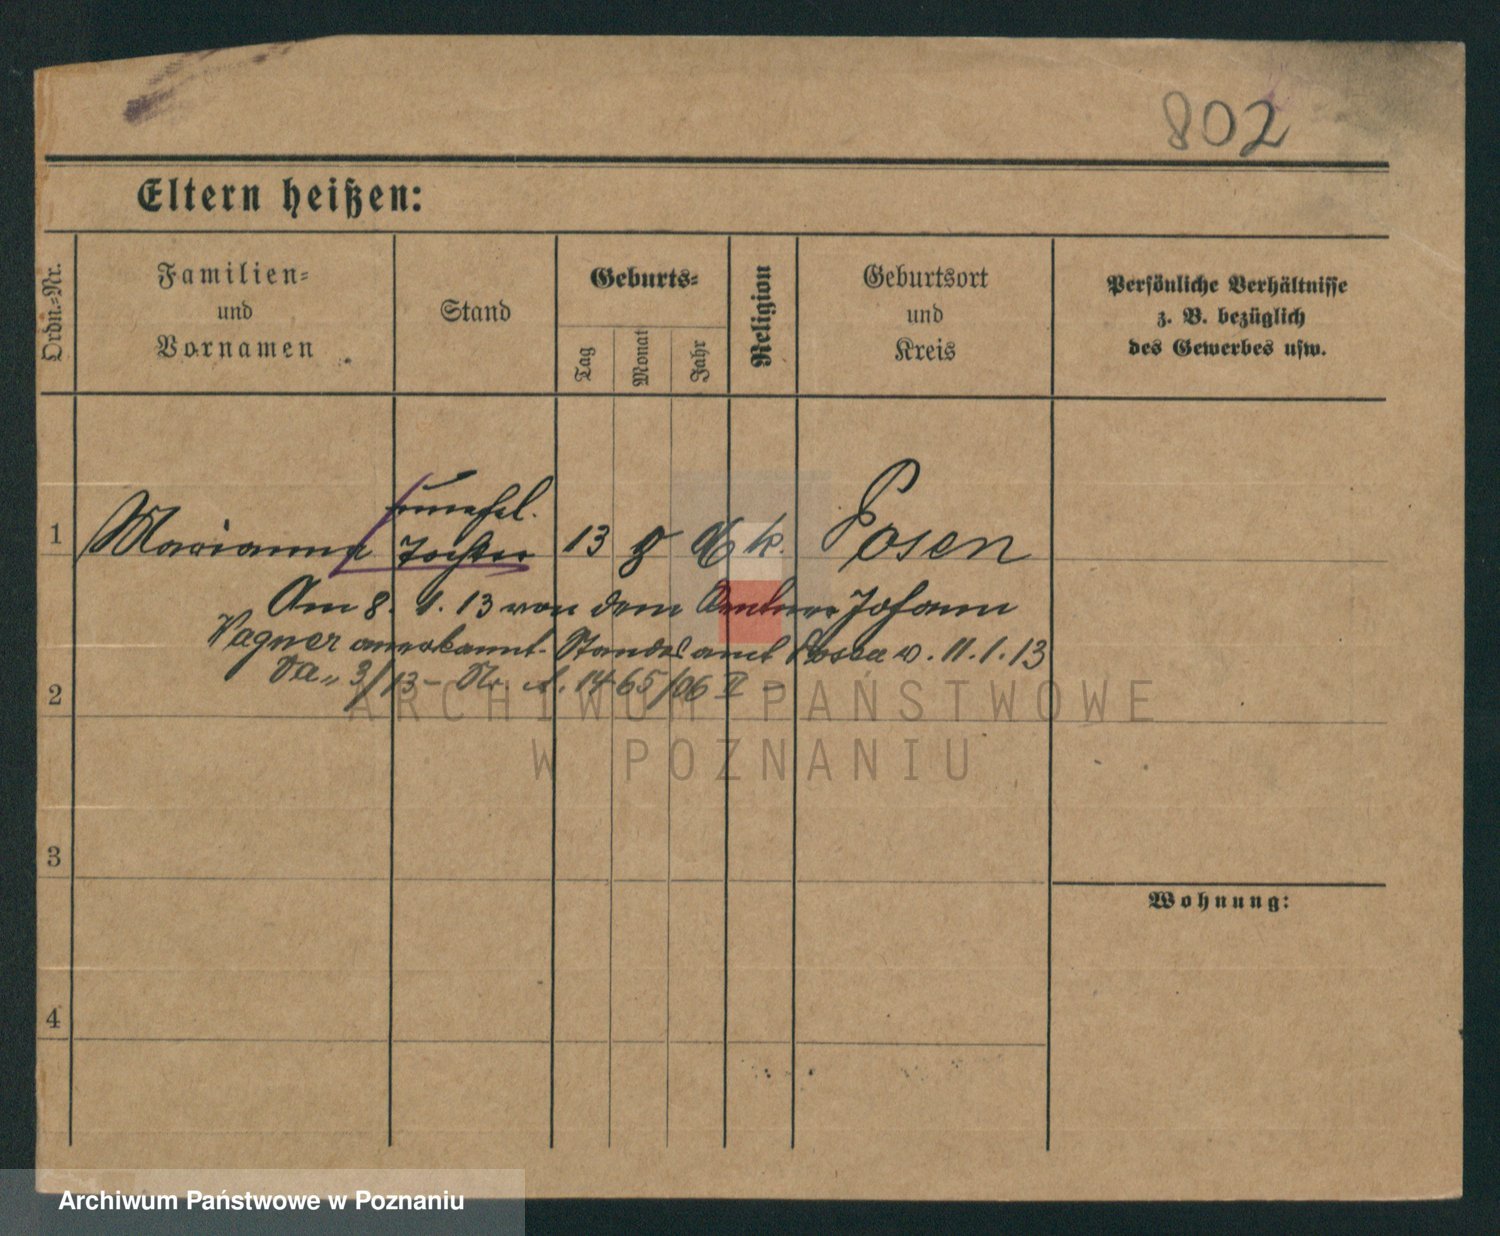 802
Eltern heißen:
Ordn.-Nr.
Familien-
und
Vornamen
Stand
Geburts-
Tag
Monat
Jahr
Religion
Geburtsort
und
Kreis
Persönliche Verhältnisse
z. B. bezüglich
des Gewerbes usw.
unehel.
1 Marianna Tochter 13 9 06 k. Posen
Am 8. 1. 13 von dem Johann
Wagner anerkannt. Standesamt Posen v. 11.1.13
3/13 - Nr. 1465/06 II -
2
ARCHIWUM PAŃSTWOWE
W POZNANIU
3
Wohnung:
4
Archiwum Państwowe w Poznaniu